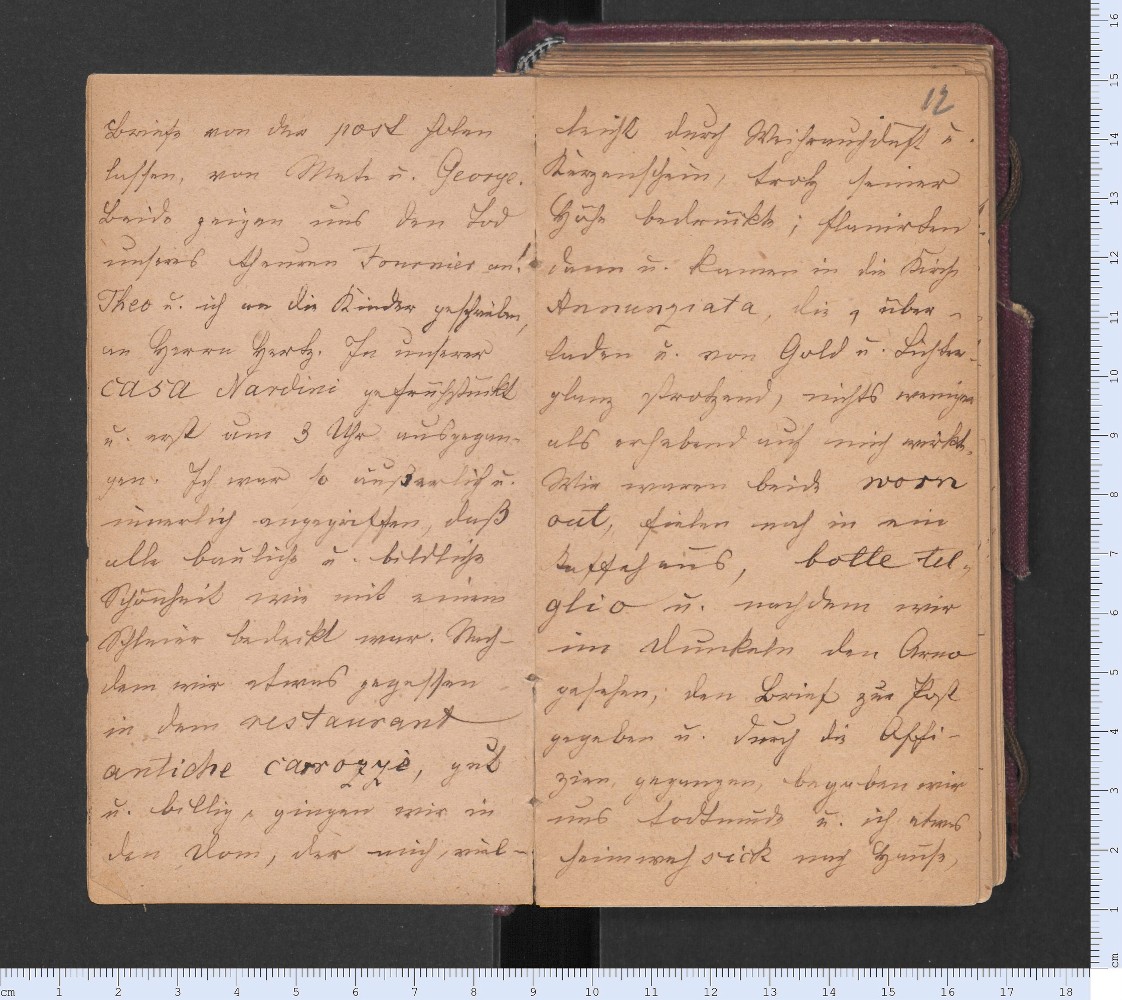 Briefe von der post holen
lassen, von Mete u. George.
Beide zeigen uns den Tod
unseres theuren Fournier an!
Theo u. ich an die Kinder geschrieben,
an Herrn Hertz. In unserer
casa Nardini gefrühstückt
u. erst um 3 Uhr ausgegan-
gen. Ich war so äußerlich u.
innerlich angegriffen, daß
alle bauliche u. bildliche
Schönheit wie mit einem
Schleier bedeckt war. Nach-
dem wir etwas gegessen
in dem restaurant
antiche carozze, gut
u. billig, gingen wir in
den Dom, der mich, viel-
12
leicht durch Weihrauchduft u.
Kerzenschein, trotz seiner
Höhe bedrückte; flanirten
dann u. kamen in die Kirche
Annunziata, die, über-
laden u. von Gold u. Lichter-
glanz strotzend, nichts weniger
als erhebend auf mich wirkte.
Wir waren beide worn
out, fielen noch in ein
Kaffehaus, botte tel-
glio u. nachdem wir
im Dunkeln den Arno
gesehen, den Brief zur Post
gegeben u. durch die Uffi-
zien gegangen, begaben wir
uns todtmüde u. ich etwas
heimwehsick nach Hause,